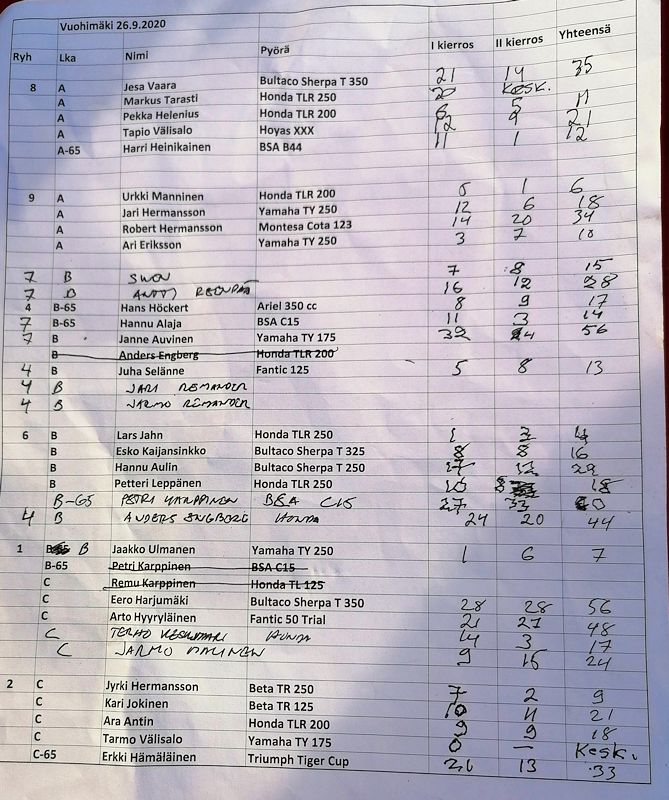 Vuohimäki 26.9.2020
Ryh Lka Nimi Pyörä I kierros II kierros Yhteensä
8 A Jesa Vaara Bultaco Sherpa T 350 21 14 35
A Markus Tarasti Honda TLR 250 20 KESK.
A Pekka Helenius Honda TLR 200 6 5 11
A Tapio Välisalo Hoyas XXX 12 9 21
A-65 Harri Heinikainen BSA B44 11 1 12
9 A Urkki Manninen Honda TLR 200 5 1 6
A Jari Hermansson Yamaha TY 250 12 6 18
A Robert Hermansson Montesa Cota 123 14 20 34
A Ari Eriksson Yamaha TY 250 3 7 10
7 B 7 8 15
7 B ANTTI 16 12 28
4 B-65 Hans Höckert Ariel 350 cc 8 9 17
7 B-65 Hannu Alaja BSA C15 11 3 14
7 B Janne Auvinen Yamaha TY 175 32 24 56
B Anders Engberg Honda TLR 200
4 B Juha Selänne Fantic 125 5 8 13
4 B JARI REMANDER
4 B JARMO REMANDER
6 B Lars Jahn Honda TLR 250 1 3 4
B Esko Kaijansinkko Bultaco Sherpa T 325 8 8 16
B Hannu Aulin Bultaco Sherpa T 250 17 12 29
B Petteri Leppänen Honda TLR 250 10 8 18
B-65 PETRI KARPPINEN BSA C15 27 33 60
4 B ANDERS ENGBERG HONDA 24 20 44
1 B Jaakko Ulmanen Yamaha TY 250 1 6 7
B-65 Petri Karppinen BSA C15
C Remu Karppinen Honda TL 125
C Eero Harjumäki Bultaco Sherpa T 350 28 28 56
C Arto Hyyryläinen Fantic 50 Trial 21 27 48
C TERHO HONDA 14 3 17
C JARMO 9 15 24
2 C Jyrki Hermansson Beta TR 250 7 2 9
C Kari Jokinen Beta TR 125 10 11 21
C Ara Antin Honda TLR 200 9 9 18
C Tarmo Välisalo Yamaha TY 175 0 — KESK.
C-65 Erkki Hämäläinen Triumph Tiger Cup 20 13 33